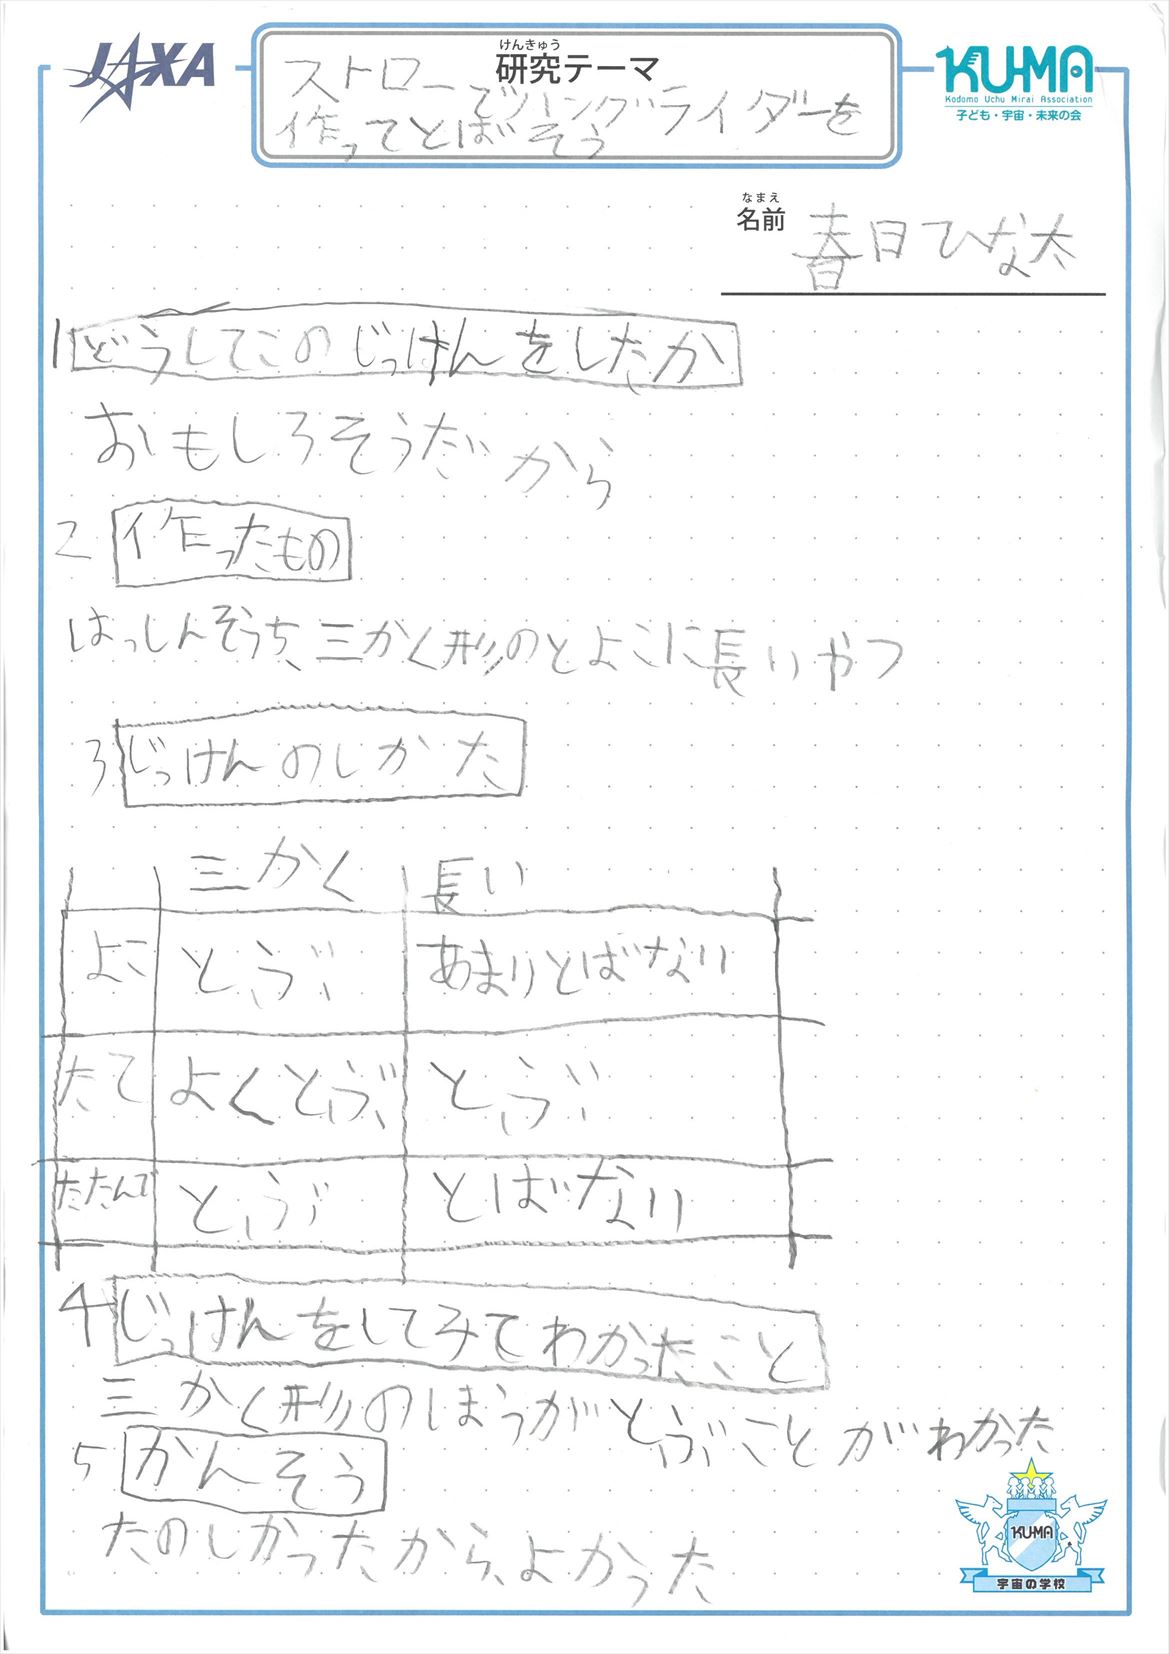 JAXA
けんきゅう
研究テーマ
KU-MA
Kodomo Uchu Mirai Association
子ども・宇宙・未来の会
ストローでリングライダーを
作ってとばそう
なまえ
名前
春日ひな太
1 どうしてこのじっけんをしたか
おもしろそうだから
2 作ったもの
はっしんそうち、三かく形のとよこに長いやつ
3 じっけんのしかた
三かく 長い
よこ とぶ あまりとばない
たて よくとぶ とぶ
たたんで とぶ とばない
4 じっけんをしてみてわかったこと
三かく形のほうがとぶことがわかった
5 かんそう
たのしかったから、よかった
KUMA
宇宙の学校